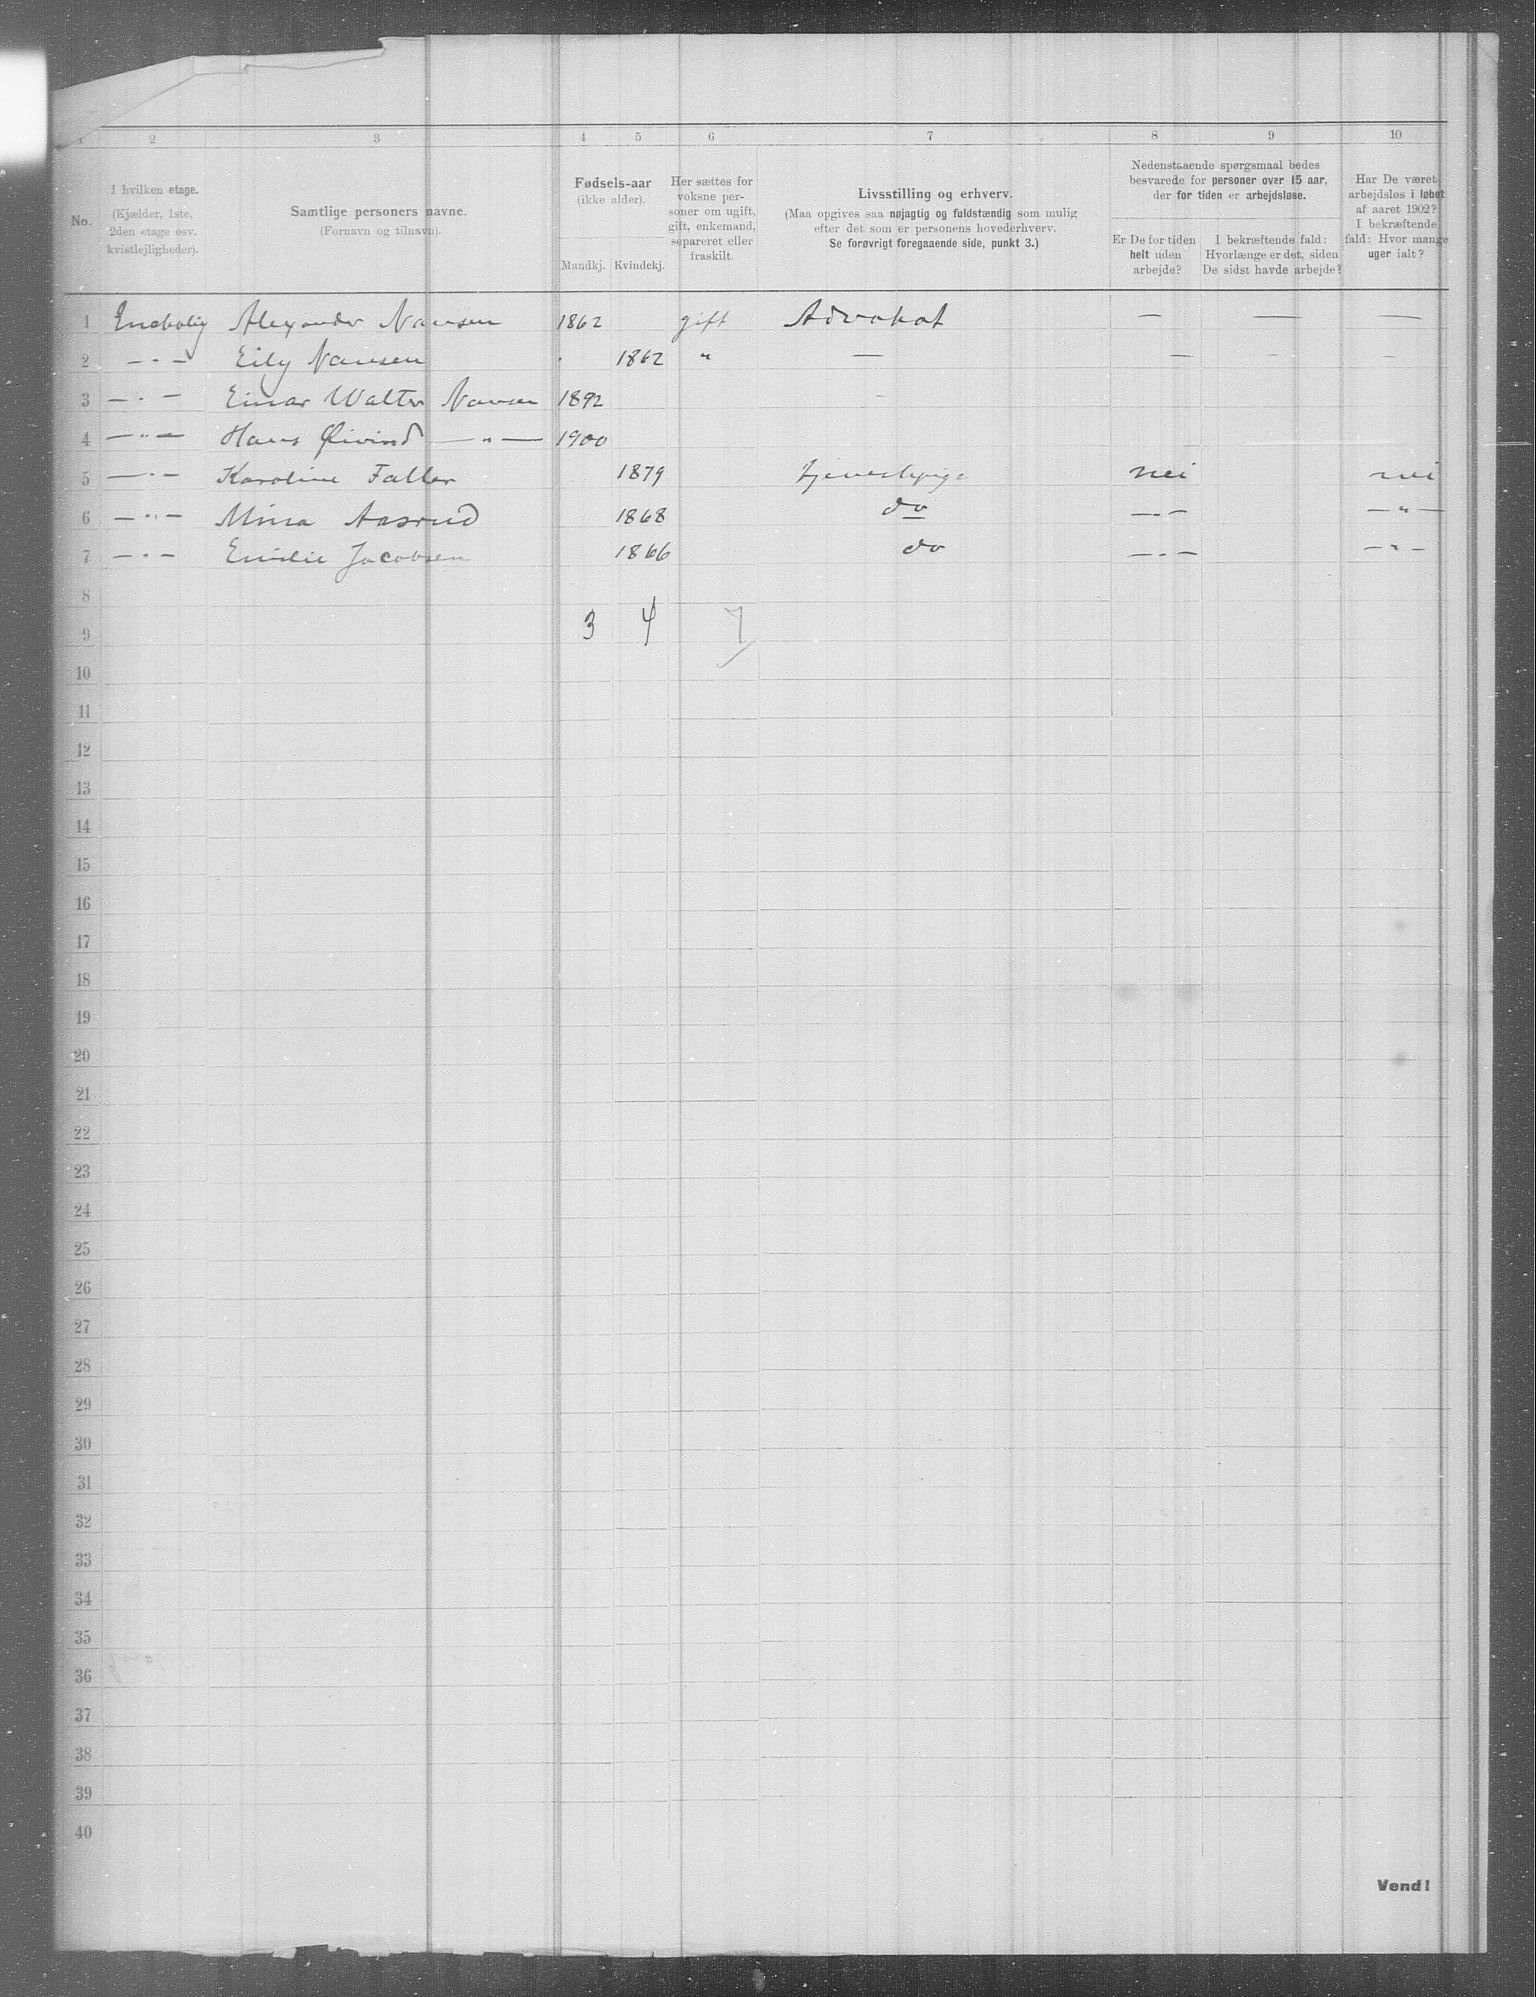 1 2 3 4 5 6 7 8 9 10
No.
I hvilken etage.
(Kjælder, 1ste,
2den etage osv.
kvistlejligheder).
Samtlige personers navne.
(Fornavn og tilnavn).
Fødsels-aar
(ikke alder).
Mandkj. Kvindekj.
Her sættes for
voksne per-
soner om ugift,
gift, enkemand,
separeret eller
fraskilt.
Livsstilling og erhverv.
(Maa opgives saa nøjagtig og fuldstændig som mulig
efter det som er personens hovederhverv.
Se forøvrigt foregaaende side, punkt 3.)
Nedenstaaende spørgsmaal bedes
besvarede for personer over 15 aar,
der for tiden er arbejdsløse.
Er De for tiden
helt uden
arbejde?
I bekræftende fald:
Hvorlænge er det, siden
De sidst havde arbejde?
Har De været
arbejdsløs i løbet
af aaret 1902?
I bekræftende
fald: Hvor mange
uger ialt?
1 Enebolig Alexander Nansen 1862 gift Advokat — — —
2 —"— Eily Nansen 1862 " — — — —
3 —"— Einar Walter Nansen 1892
4 —"— Hans Øivind —"— 1900
5 —"— Karoline Faller 1879 tjenestepige nei nei
6 —"— Mina Aasrud 1868 do —"— —"—
7 —"— Emilie Jacobsen 1866 do —"— —"—
8
3 4 7
9
10
11
12
13
14
15
16
17
18
19
20
21
22
23
24
25
26
27
28
29
30
31
32
33
34
35
36
37
38
39
40
Vend!